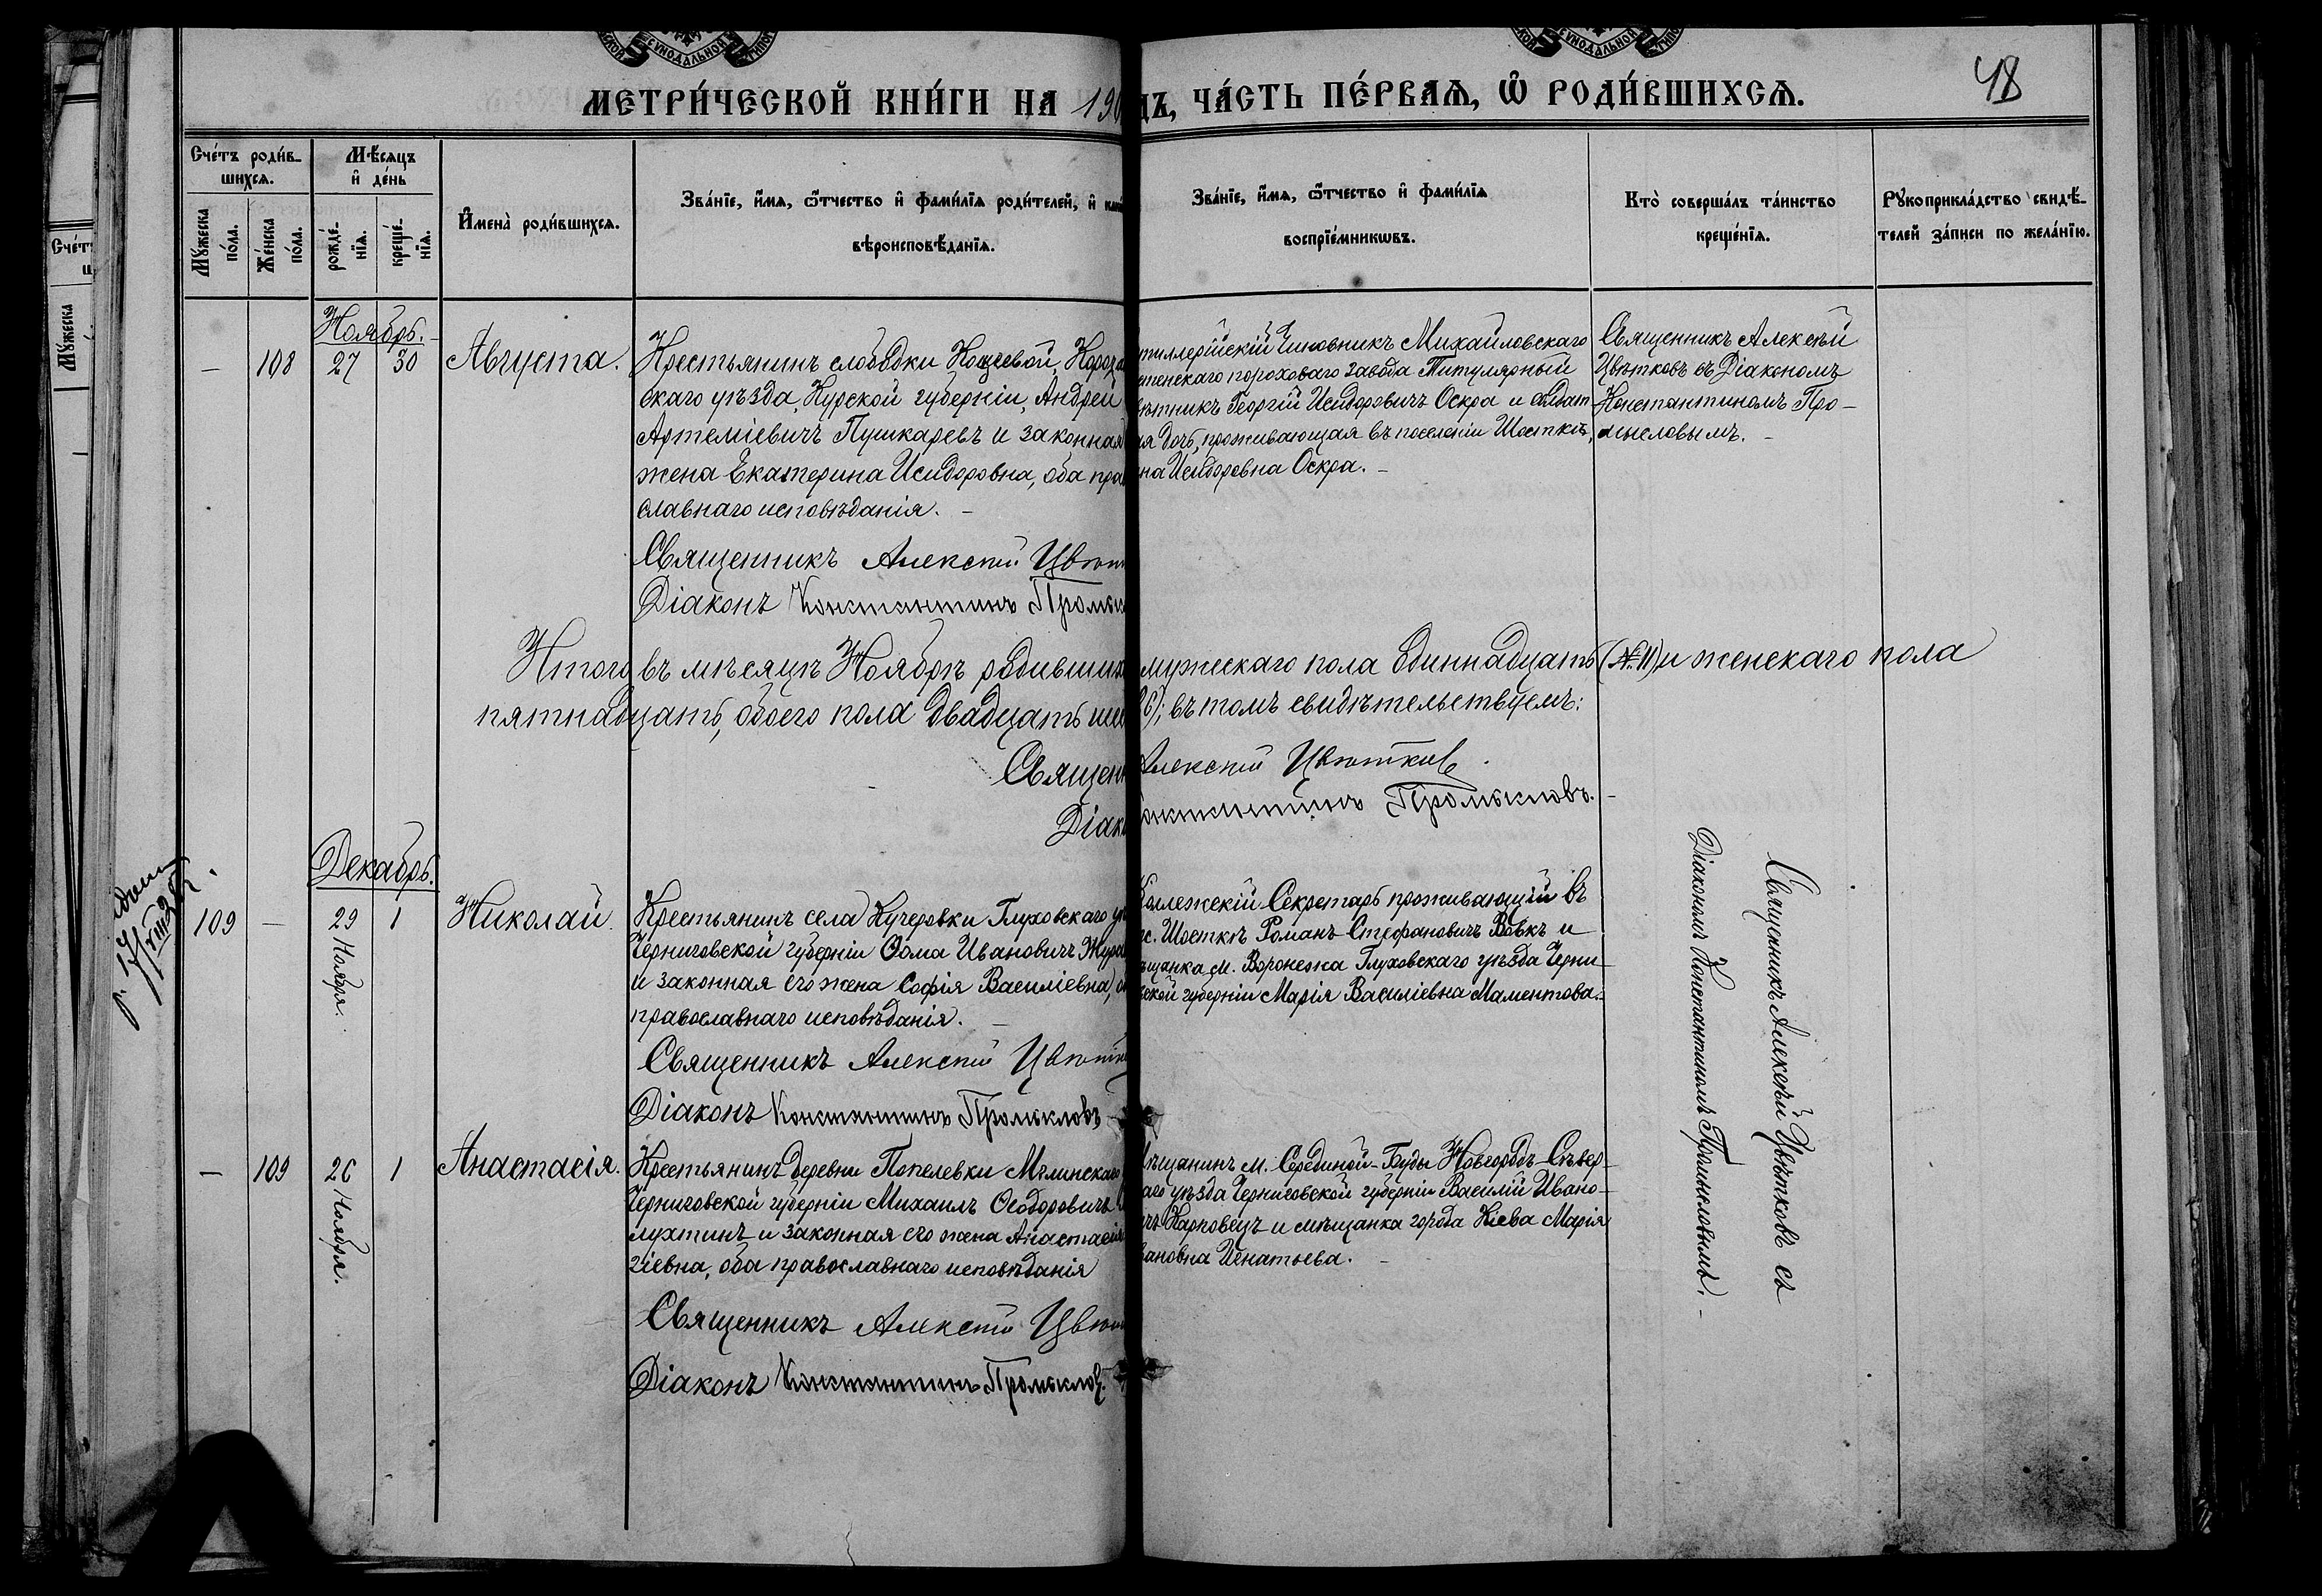 СѴНОДАЛЬНОЙ
СѴНОДАЛЬНОЙ
МЕТРИ́ЧЕСКОЙ КНИ́ГИ НА 190
ДЪ, ЧА́СТЬ ПЕ́РВАѦ, Ѿ РОДИ́ВШИХСѦ.
48
Сче́тъ роди́в-
шихсѧ.
Мꙋ́жеска по́ла.
Же́нска по́ла.
Мѣ́сѧцъ и҆ де́нь
рожде́-
нїѧ.
креще́-
нїѧ.
И҆мена̀ роди́вшихсѧ.
Зва́нїе, и҆́мѧ, ѻ҆́тчество и҆ фами́лїѧ роди́телей, и҆ как
вѣроисповѣ́данїѧ.
Зва́нїе, и҆́мѧ, ѻ҆́тчество и҆ фами́лїѧ
воспрїе́мникѡвъ.
Кто̀ соверша́лъ та́инство
креще́нїѧ.
Рꙋкоприкла́дство свидѣ́-
телей за́писи по жела́нїю.
Сче́т
Мꙋ́жеска
Ноябрь.
— 108 27 30 Августа.
Крестьянинъ слободки Нощевой, Короча
скаго уѣзда, Курской губерніи, Андрей
Артеміевичъ Пушкаревъ и законная
жена Екатерина Исидоровна, оба пра
славнаго исповѣданія. —
Священникъ Алексѣй Цвѣт
Діаконъ Константинъ Промы
тиллерійскій Чиновникъ Михайловскаго
стенскаго пороховаго завода Титулярный
вѣтникъ Георгій Исидоровичъ Оскра и солдат
ая дочь, проживающая въ поселеніи Шосткѣ,
на Исидоровна Оскра. —
Священникъ Алексѣй
Цвѣтковъ съ Діакономъ
Константиномъ Про-
мысловымъ. —
Итого въ мѣсяцѣ Ноябрѣ родивших мужескаго пола одиннадцать (№ 11) и женскаго пола
пятнадцать, обоего пола двадцать ше 26); въ томъ свидѣтельствуемъ:
Священ Алексѣй Цвѣтковъ.
Діако нстантинъ Промысловъ. —
Декабрь.
109 — 29 Ноября. 1 Николай.
Крестьянинъ села Кучеровки Глуховскаго уѣ
Черниговской губерніи Ѳома Ивановичъ Жура
и законная его жена Софія Василіевна, о
православнаго исповѣданія. —
Священникъ Алексѣй Цвѣтк
Діаконъ Константинъ Промысловъ
Коллежскій Секретарь проживающій въ
с. Шосткѣ Романъ Стефановичъ Вовкъ и
ѣщанка м. Воронежа Глуховскаго уѣзда Черни-
вской губерніи Марія Василіевна Маментова. —
Священникъ Алексѣй Цвѣтковъ съ
Діакономъ Константиномъ Промысловымъ. —
— 109 26 Ноября. 1 Анастасія.
Крестьянинъ деревни Попелевки Мглинскаго
Черниговской губерніи Михаилъ Ѳеодоровичъ
лухтинъ и законная его жена Анастасія
гіевна, оба православнаго исповѣданія
Священникъ Алексѣй Цвѣт
Діаконъ Константинъ Промыслов.
ѣщанинъ м. Серединой-Буды Новгородъ-Сѣвер-
аго уѣзда Черниговской губерніи Василій Ивано-
чъ Карповецъ и мѣщанка города Кіева Марія
вановна Игнатьева. —